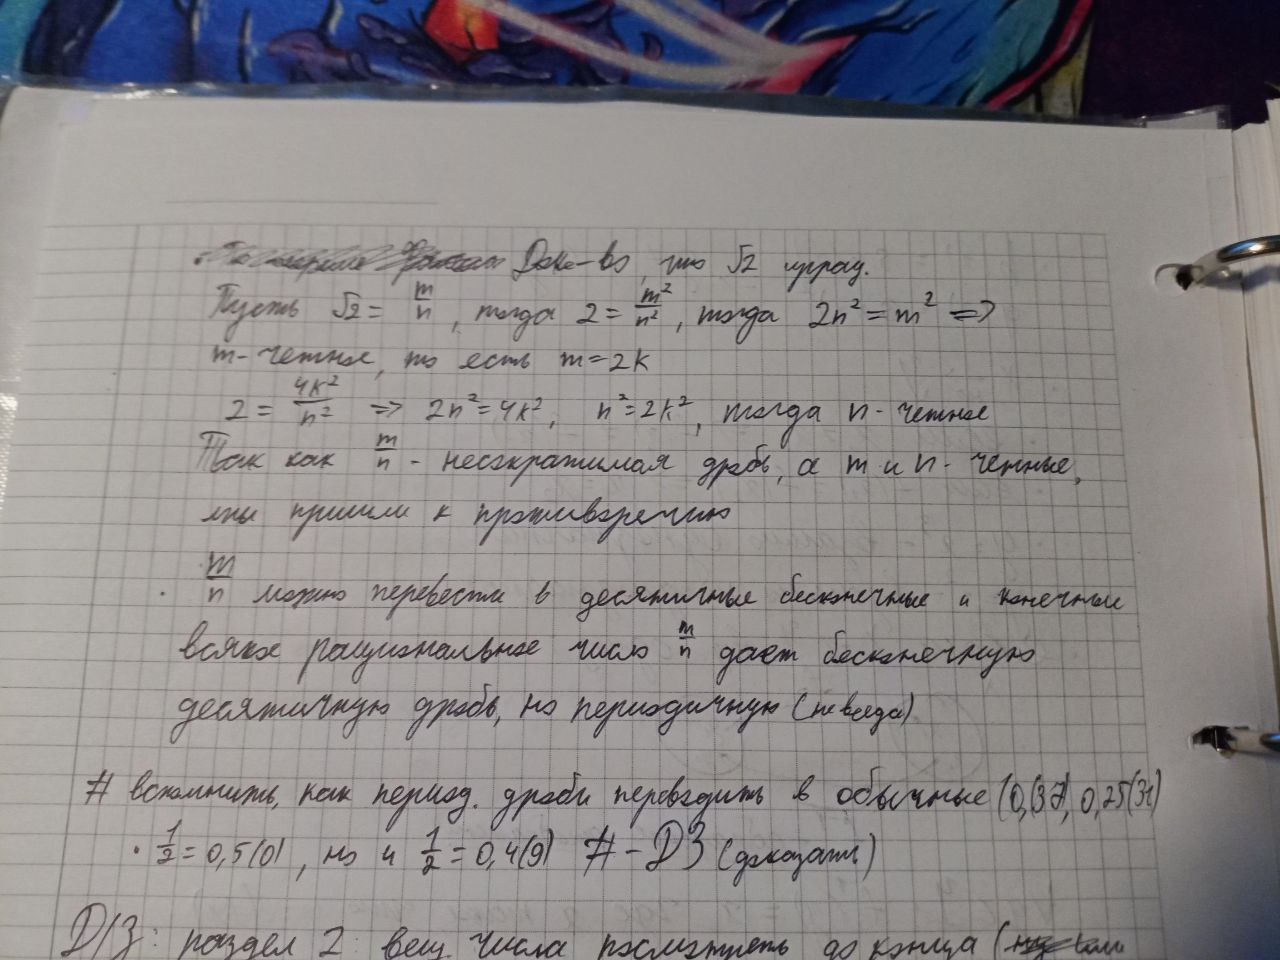 Док-во, что √2 иррац.
Пусть √2 = m/n, тогда 2 = m²/n², тогда 2n² = m² =>
m - четное, то есть m = 2k
2 = 4k²/n² => 2n² = 4k², n² = 2k², тогда n - четное
Так как m/n - несократимая дробь, а m и n - четные,
мы пришли к противоречию
. m/n можно перевести в десятичные бесконечные и конечные
всякое рациональное число m/n дает бесконечную
десятичную дробь, но периодичную (не всегда)
# вспомнить, как период. дроби переводить в обычные (0,(37), 0,25(31)
. 1/2 = 0,5(0), но и 1/2 = 0,4(9) # - ДЗ (доказать)
Д/З: раздел 2: вещ. числа посмотреть до конца (